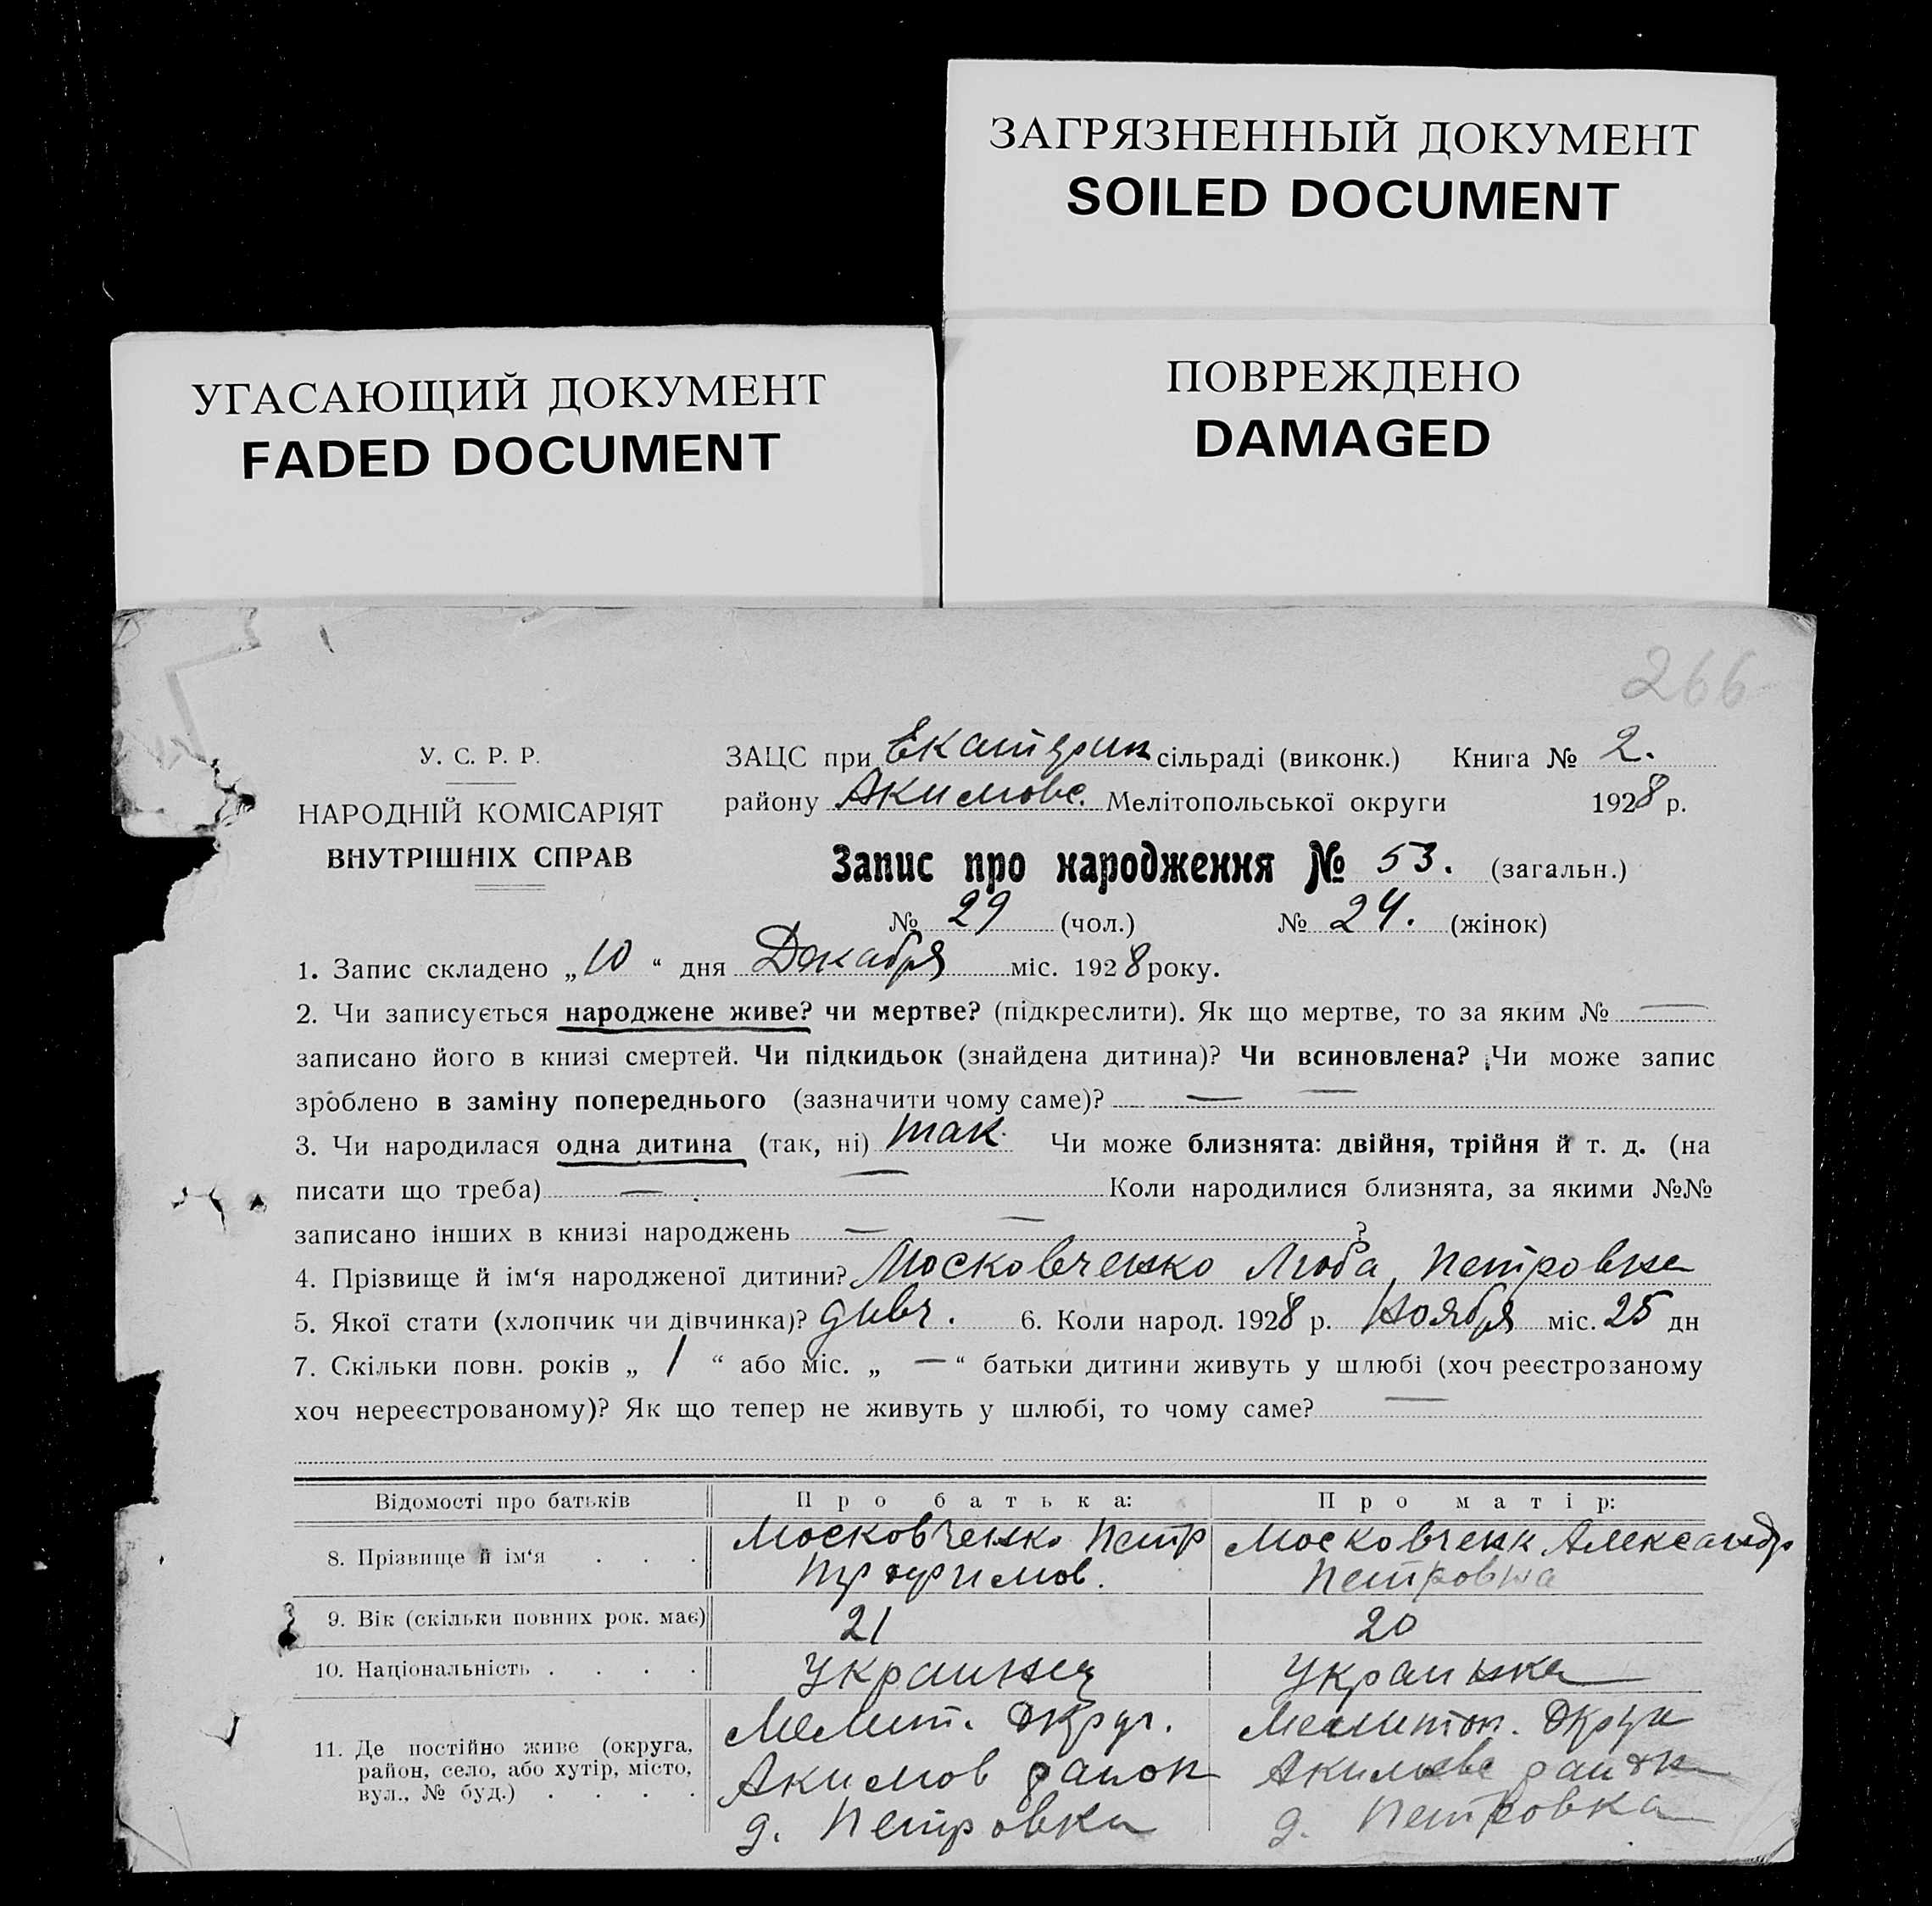 ЗАГРЯЗНЕННЫЙ ДОКУМЕНТ
SOILED DOCUMENT
УГАСАЮЩИЙ ДОКУМЕНТ
FADED DOCUMENT
ПОВРЕЖДЕНО
DAMAGED
266
У. С. Р. Р.
НАРОДНІЙ КОМІСАРІЯТ
ВНУТРІШНІХ СПРАВ
ЗАЦС при Екатерин сільраді (виконк.) Книга № 2.
району Акимовс. Мелітопольської округи 1928 р.
Запис про народження № 53. (загальн.)
№ 29 (чол.) № 24. (жінок)
1. Запис складено „10“ дня Декабря міс. 1928 року.
2. Чи записується народжене живе? чи мертве? (підкреслити). Як що мертве, то за яким № —
записано його в книзі смертей. Чи підкидьок (знайдена дитина)? Чи всиновлена? Чи може запис
зроблено в заміну попереднього (зазначити чому саме)? — —
3. Чи народилася одна дитина (так, ні) так. Чи може близнята: двійня, трійня й т. д. (на
писати що треба) — — Коли народилися близнята, за якими №№
записано інших в книзі народжень — — ?
4. Прізвище й ім‘я народженої дитини? Московченко Люба Петровна
5. Якої стати (хлопчик чи дівчинка)? дивч. 6. Коли народ. 1928 р. Ноября міс. 25 дн
7. Скільки повн. років „ 1 “ або міс. „ — “ батьки дитини живуть у шлюбі (хоч реєстрозаному
хоч нереєстрованому)? Як що тепер не живуть у шлюбі, то чому саме? —
Відомості про батьків Про батька: Про матір:
8. Прізвище й ім‘я . . . Московченко Петр Московченк Александр
Трофимов. Петровна
9. Вік (скільки повних рок. має) 21 20
10. Національність . . . . Украинец Украинка
11. Де постійно живе (округа, район, село, або хутір, місто, вул., № буд.) . . . .
Мелит. Округ. Мелитоп. Округ
Акимов район Акимовс район
д. Петровка д. Петровка